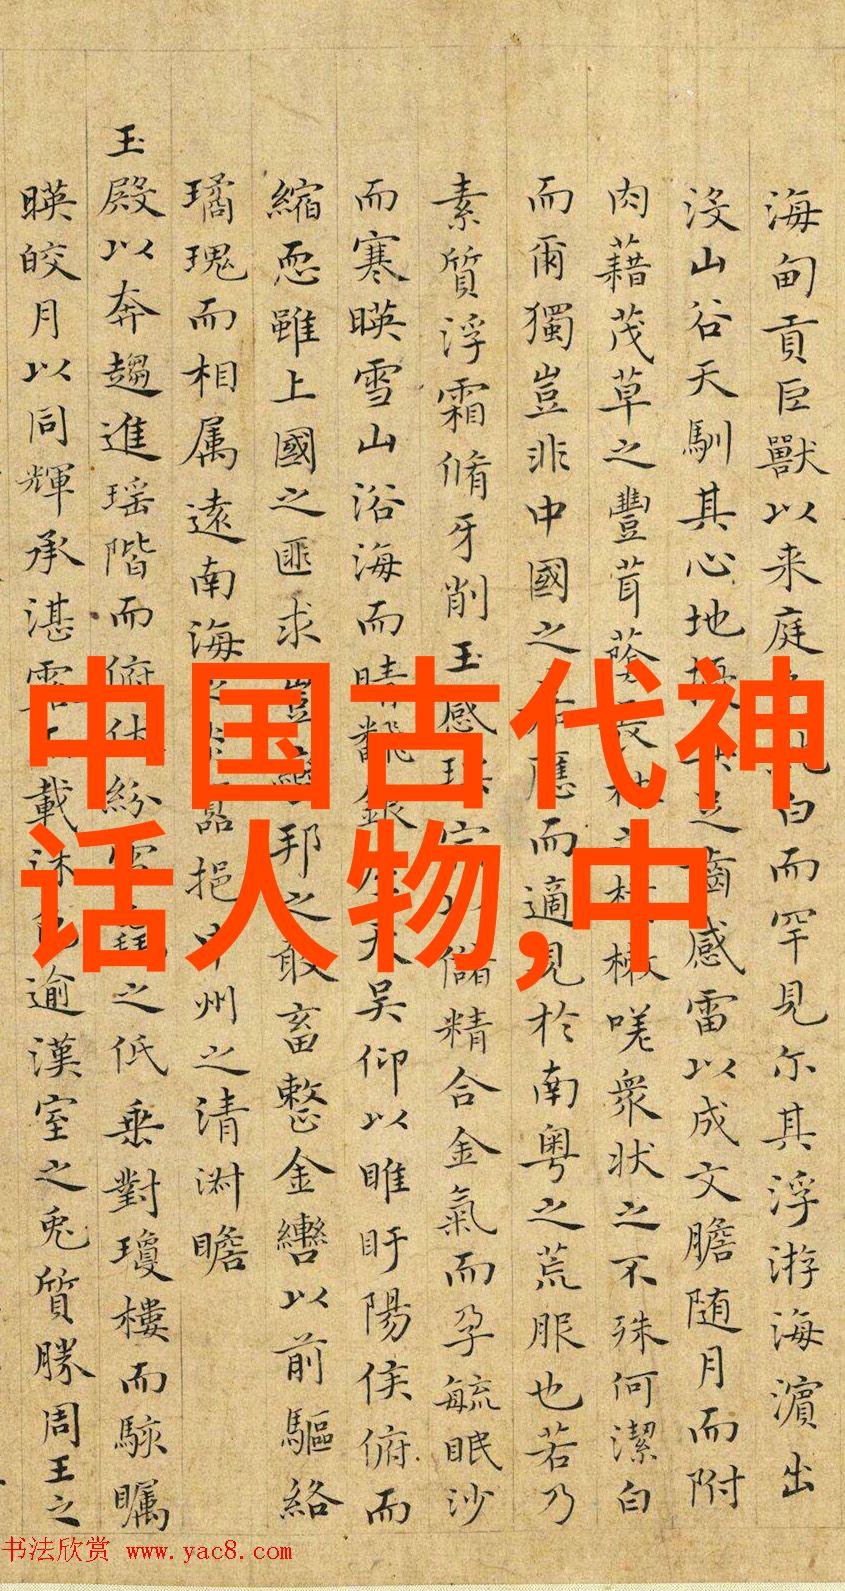 海甸貢巨獸以来庭白而罕見尓其浮游海濵出
没山谷天馴其心地擾其足齒感雷以成文膽随月而附
肉藉茂草之豐茸蔭長林之嗟衆状之不殊何潔白
而爾獨豈非中國之有應而適見於南粤之荒服也若乃
素質浮霜脩牙削玉感以儲精合金氣而孕毓眠沙
而寒暎雪山浴海而晴翻銀屋天吴仰以睢盱陽侯俯而
縮恧雖上國之匪求豈邦之敢畜整金轡以前驅絡
璚瑰而相属遠南海之磊挹甲州之清淵瞻
玉殿以奔趨進瑶階而俯伏紛之低垂對瓊樓而駭矚
暎皎月以同輝承湛露載沐色逾漢室之兎質勝周王之
中国古代神
话人物,中
书法欣赏 www.yac8.com